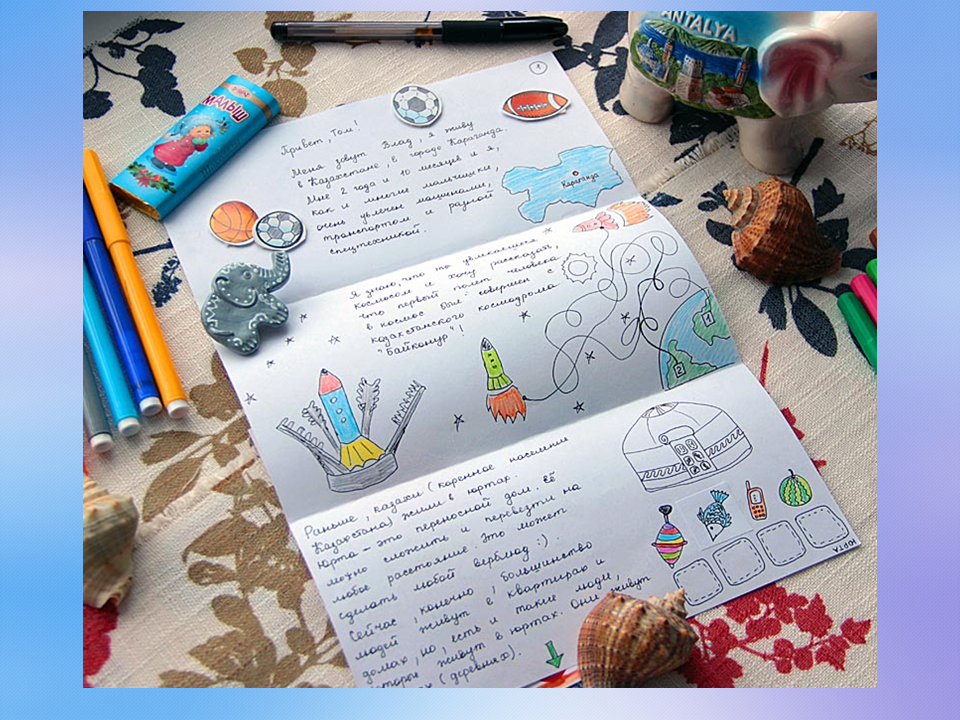 ANTALYA
МАЛЫШ
1
Привет, Том!
Меня зовут Влад, я живу
в Казахстане, в городе Караганда.
Мне 2 года и 10 месяцев и я,
как и многие мальчишки,
очень увлечен машинами,
транспортом и разной
спецтехникой.
Караганда
Я знаю, что ты увлекаешься
космосом и хочу рассказать,
что первый полет человека
в космос был совершен с
казахстанского космодрома
"Байконур"!
1
2
Раньше, казахи (коренное население
Казахстана) жили в юртах.
Юрта - это переносной дом. Её
можно сложить и перевезти на
любое расстояние. Это может
сделать любой верблюд :).
Сейчас, конечно, большинство
людей живут в квартирах и
домах, но, есть и такие люди,
которые живут в юртах. Они живут
(деревнях).
ЮРТА